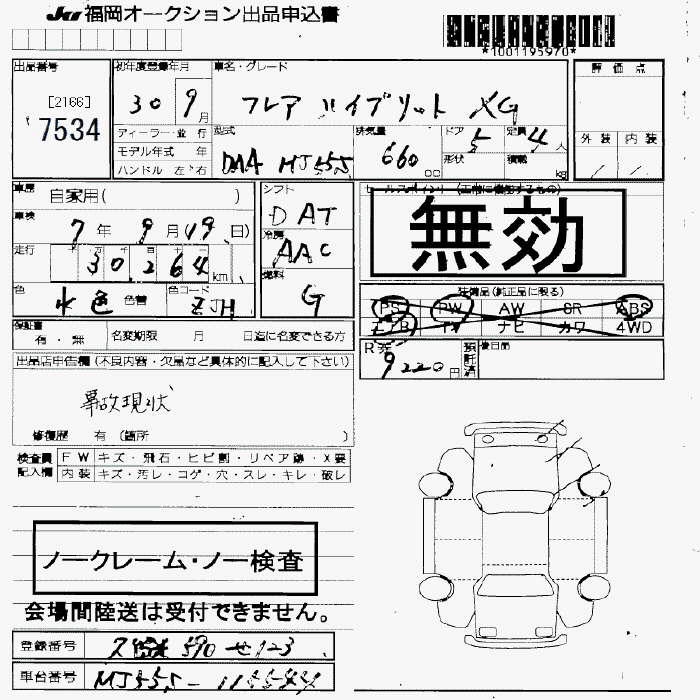 JU 福岡オークション出品申込書
*1001195970*
出品番号
[2166]
7534
初年度登録年月
30 9月
ディーラー・並行
モデル年式 年
ハンドル 左・右
車名・グレード
フレア ハイブリット XG
型式
DAA MJ55S
排気量
660 cc
ドア
5
定員
4人
形状
積載
kg
評価点
外装 内装
車歴
自家用( )
車検
7年 9月(19日)
走行
30,264 km
色
水色 色替
色コード
ZJH
シフト
DAT
冷房
AAC
燃料
G
セールスポイント (正常に機能するもの)
無効
装備品(純正品に限る)
PS PW AW SR ABS
エアB TV ナビ カワ 4WD
保証書
有・無
名変期限 月 日迄に名変できる方
R券
9220円
預託済
後日品
出品店申告欄(不良内容・欠品など具体的に記入して下さい)
事故現状
修復歴 有 (箇所 )
検査員記入欄
FW キズ・飛石・ヒビ割・リペア跡・X要
内装 キズ・汚レ・コゲ・穴・スレ・キレ・破レ
ノークレーム・ノー検査
会場間陸送は受付できません。
登録番号
590 せ 123
車台番号
MJ55S-